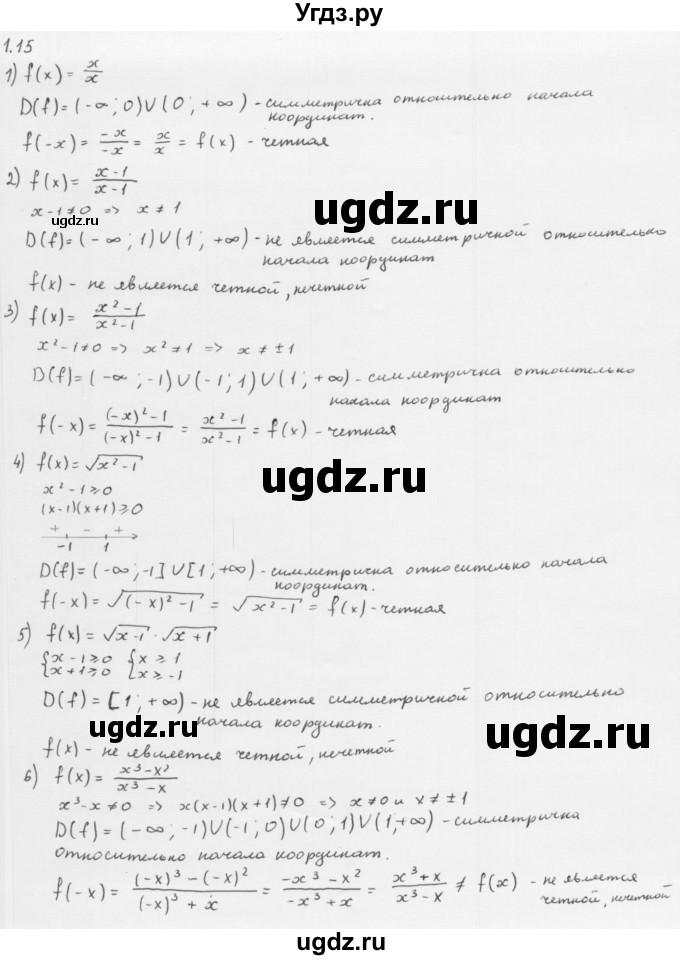 Угдз.ру
1.15
1) f(x) = x/x
D(f) = (-∞; 0)∪(0; +∞) - симметрична относительно начала
координат.
f(-x) = -x/-x = x/x = f(x) - четная
2) f(x) = x-1/x-1
ugdz.ru
x-1≠0 => x≠1
ugdz.ru
D(f) = (-∞; 1)∪(1; +∞) - не является симметричной относительно
начала координат
f(x) - не является четной, нечетной
3) f(x) = x²-1/x²-1
x²-1≠0 => x²≠1 => x≠±1
D(f) = (-∞; -1)∪(-1; 1)∪(1; +∞) - симметрична относительно
начала координат
f(-x) = (-x)²-1/(-x)²-1 = x²-1/x²-1 = f(x) - четная
4) f(x) = √x²-1
ugdz.ru
x²-1≥0
(x-1)(x+1)≥0
+ - +
-1 1
D(f) = (-∞; -1]∪[1; +∞) - симметрична относительно начала
координат.
f(-x) = √(-x)²-1 = √x²-1 = f(x) - четная
5) f(x) = √x-1 · √x+1
{x-1≥0 {x≥1
{x+1≥0 {x≥-1
D(f) = [1; +∞) - не является симметричной относительно
начала координат.
ugdz.ru
ugdz.ru
f(x) - не является четной, нечетной
6) f(x) = x³-x²/x³-x
x³-x≠0 => x(x-1)(x+1)≠0 => x≠0 и x≠±1
D(f) = (-∞; -1)∪(-1; 0)∪(0; 1)∪(1; +∞) - симметрична
относительно начала координат.
f(-x) = (-x)³-(-x)²/(-x)³+x = -x³-x²/-x³+x = x³+x/x³-x ≠ f(x) - не является
четной, нечетной
ugdz.ru